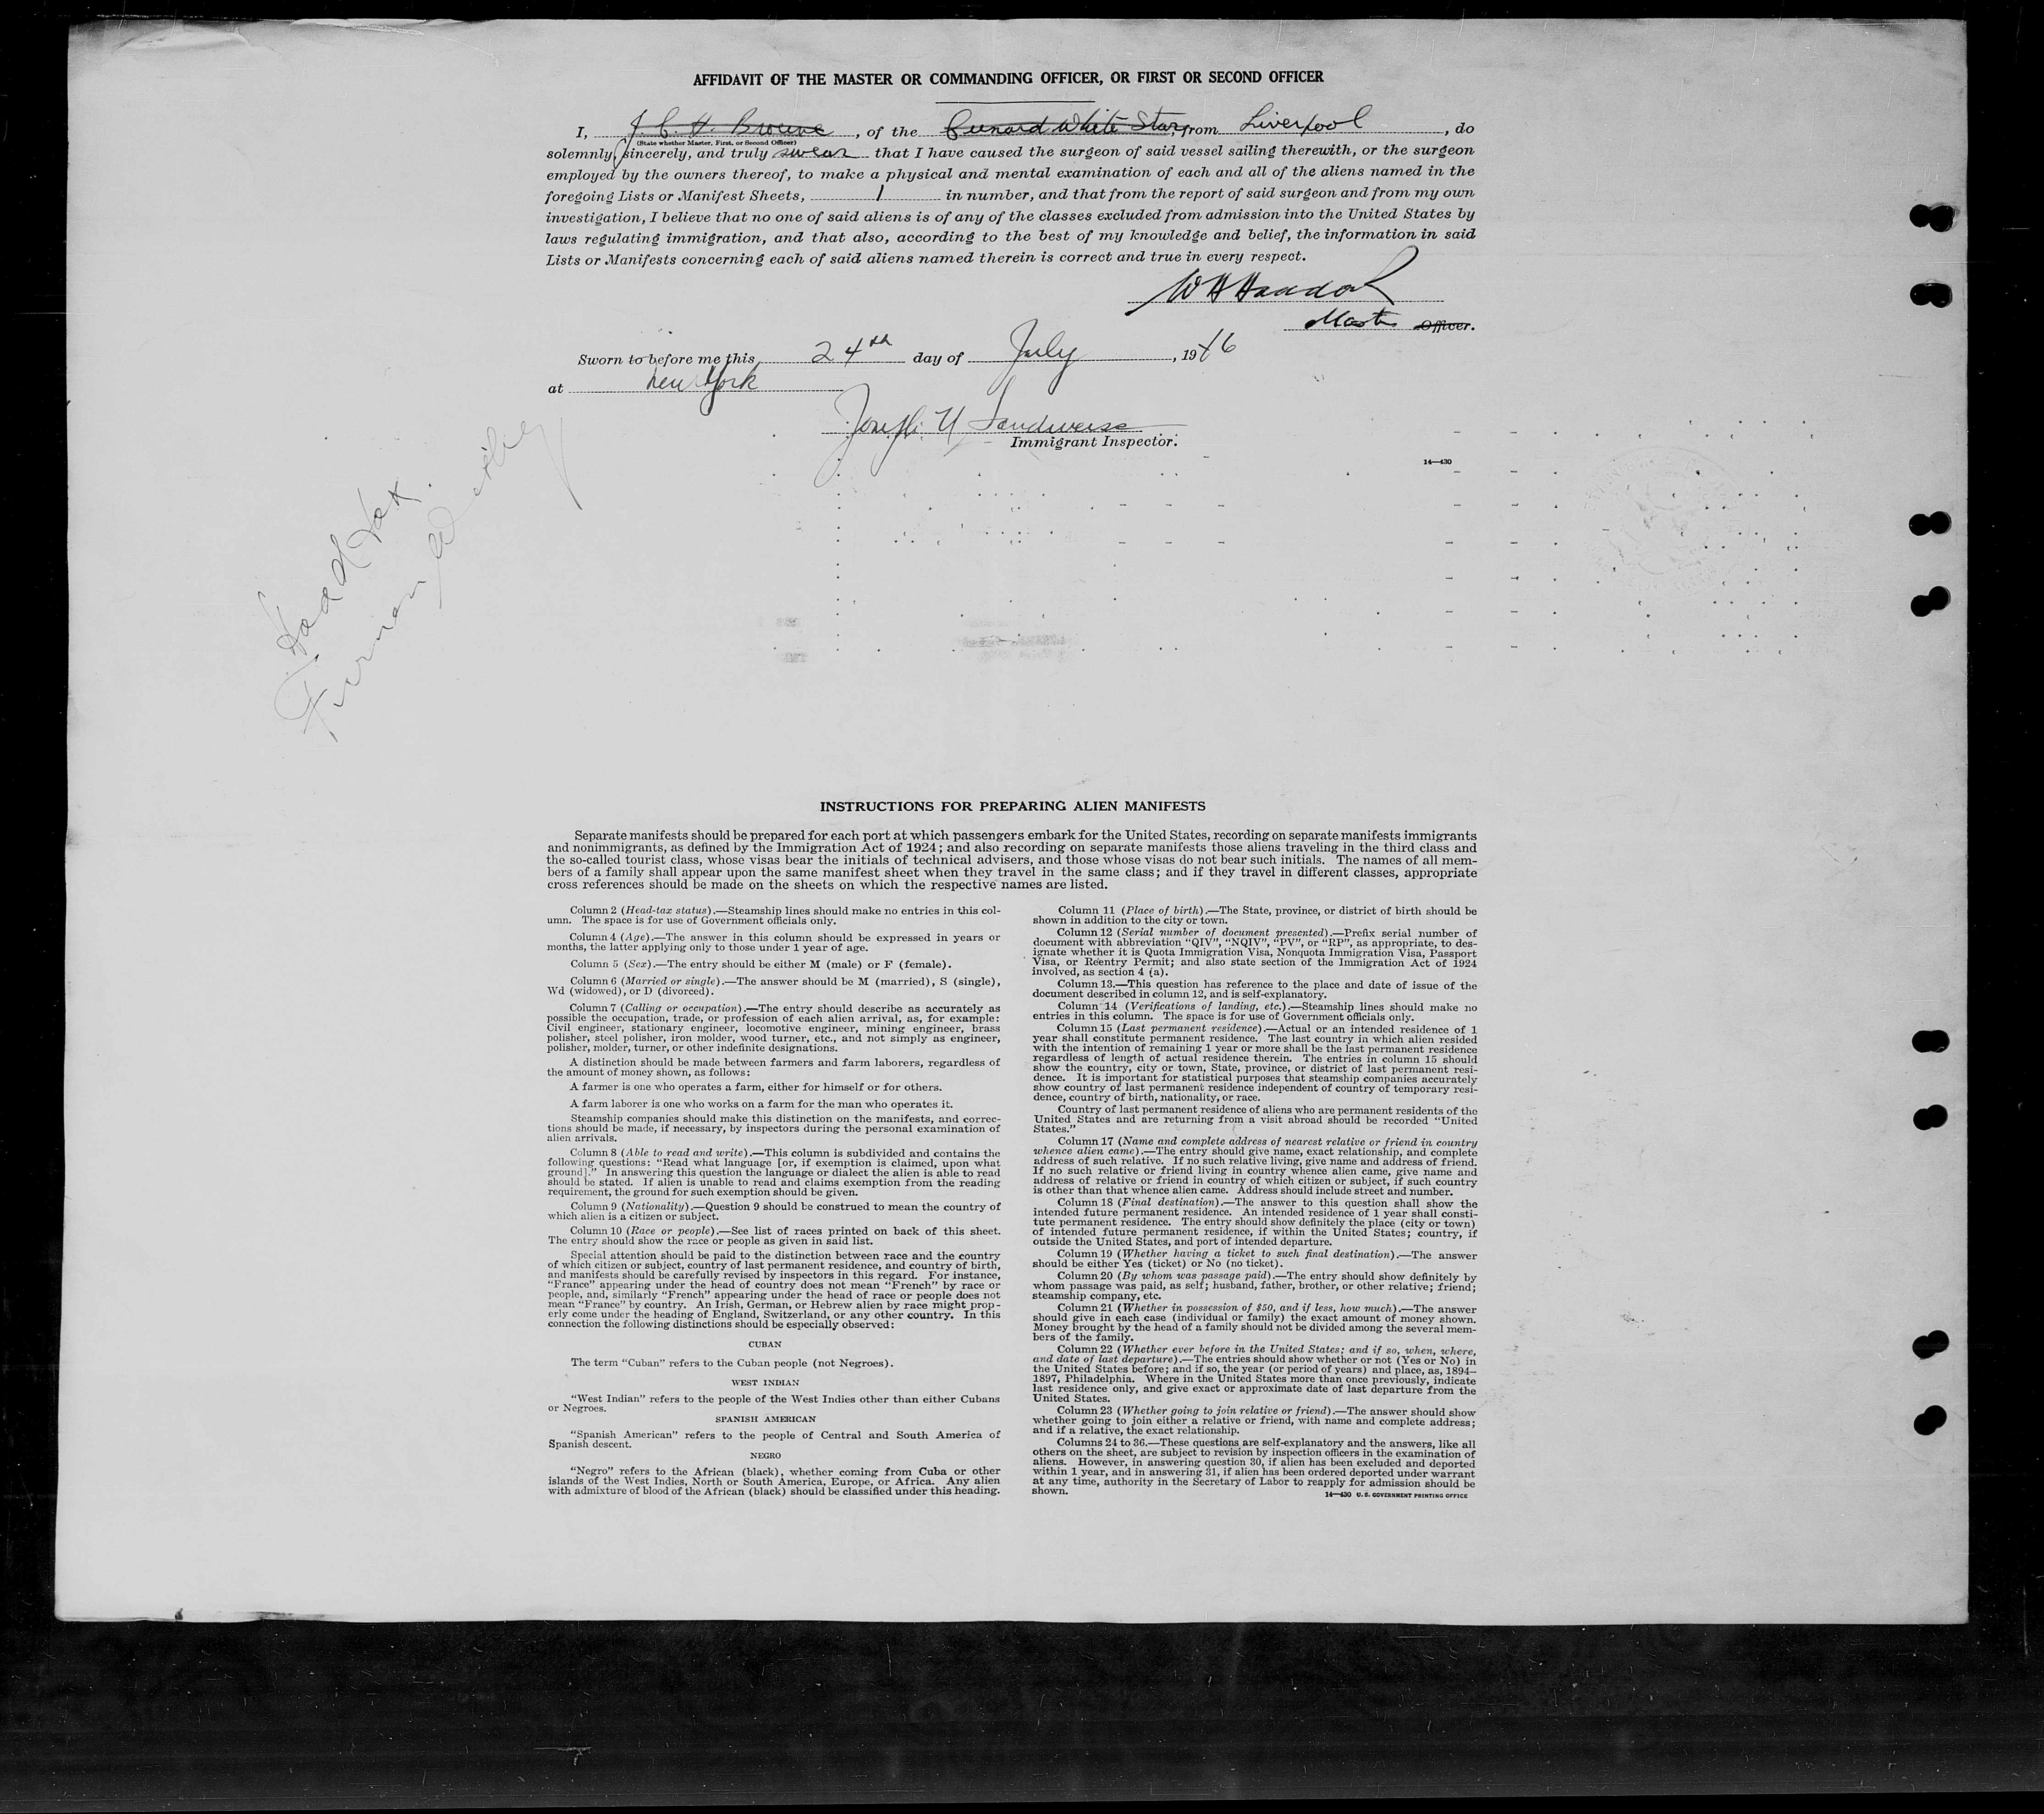 AFFIDAVIT OF THE MASTER OR COMMANDING OFFICER, OR FIRST OR SECOND OFFICER
I, J. C. H. Browne, of the Cunard White Star, from Liverpool, do
(State whether Master, First, or Second Officer)
solemnly, sincerely, and truly swear that I have caused the surgeon of said vessel sailing therewith, or the surgeon
employed by the owners thereof, to make a physical and mental examination of each and all of the aliens named in the
foregoing Lists or Manifest Sheets, 1 in number, and that from the report of said surgeon and from my own
investigation, I believe that no one of said aliens is of any of the classes excluded from admission into the United States by
laws regulating immigration, and that also, according to the best of my knowledge and belief, the information in said
Lists or Manifests concerning each of said aliens named therein is correct and true in every respect.
W H
Master Officer.
Sworn to before me this 24th day of July, 1946
at New York
Joseph
Immigrant Inspector.
14—430
Head Tax
INSTRUCTIONS FOR PREPARING ALIEN MANIFESTS
Separate manifests should be prepared for each port at which passengers embark for the United States, recording on separate manifests immigrants
and nonimmigrants, as defined by the Immigration Act of 1924; and also recording on separate manifests those aliens traveling in the third class and
the so-called tourist class, whose visas bear the initials of technical advisers, and those whose visas do not bear such initials. The names of all mem-
bers of a family shall appear upon the same manifest sheet when they travel in the same class; and if they travel in different classes, appropriate
cross references should be made on the sheets on which the respective names are listed.
Column 2 (Head-tax status).—Steamship lines should make no entries in this col-
umn. The space is for use of Government officials only.
Column 4 (Age).—The answer in this column should be expressed in years or
months, the latter applying only to those under 1 year of age.
Column 5 (Sex).—The entry should be either M (male) or F (female).
Column 6 (Married or single).—The answer should be M (married), S (single),
Wd (widowed), or D (divorced).
Column 7 (Calling or occupation).—The entry should describe as accurately as
possible the occupation, trade, or profession of each alien arrival, as, for example:
Civil engineer, stationary engineer, locomotive engineer, mining engineer, brass
polisher, steel polisher, iron molder, wood turner, etc., and not simply as engineer,
polisher, molder, turner, or other indefinite designations.
A distinction should be made between farmers and farm laborers, regardless of
the amount of money shown, as follows:
A farmer is one who operates a farm, either for himself or for others.
A farm laborer is one who works on a farm for the man who operates it.
Steamship companies should make this distinction on the manifests, and correc-
tions should be made, if necessary, by inspectors during the personal examination of
alien arrivals.
Column 8 (Able to read and write).—This column is subdivided and contains the
following questions: “Read what language [or, if exemption is claimed, upon what
ground].” In answering this question the language or dialect the alien is able to read
should be stated. If alien is unable to read and claims exemption from the reading
requirement, the ground for such exemption should be given.
Column 9 (Nationality).—Question 9 should be construed to mean the country of
which alien is a citizen or subject.
Column 10 (Race or people).—See list of races printed on back of this sheet.
The entry should show the race or people as given in said list.
Special attention should be paid to the distinction between race and the country
of which citizen or subject, country of last permanent residence, and country of birth,
and manifests should be carefully revised by inspectors in this regard. For instance,
“France” appearing under the head of country does not mean “French” by race or
people, and, similarly “French” appearing under the head of race or people does not
mean “France” by country. An Irish, German, or Hebrew alien by race might prop-
erly come under the heading of England, Switzerland, or any other country. In this
connection the following distinctions should be especially observed:
CUBAN
The term “Cuban” refers to the Cuban people (not Negroes).
WEST INDIAN
“West Indian” refers to the people of the West Indies other than either Cubans
or Negroes.
SPANISH AMERICAN
“Spanish American” refers to the people of Central and South America of
Spanish descent.
NEGRO
“Negro” refers to the African (black), whether coming from Cuba or other
islands of the West Indies, North or South America, Europe, or Africa. Any alien
with admixture of blood of the African (black) should be classified under this heading.
Column 11 (Place of birth).—The State, province, or district of birth should be
shown in addition to the city or town.
Column 12 (Serial number of document presented).—Prefix serial number of
document with abbreviation “QIV”, “NQIV”, “PV”, or “RP”, as appropriate, to des-
ignate whether it is Quota Immigration Visa, Nonquota Immigration Visa, Passport
Visa, or Reentry Permit; and also state section of the Immigration Act of 1924
involved, as section 4 (a).
Column 13.—This question has reference to the place and date of issue of the
document described in column 12, and is self-explanatory.
Column 14 (Verifications of landing, etc.).—Steamship lines should make no
entries in this column. The space is for use of Government officials only.
Column 15 (Last permanent residence).—Actual or an intended residence of 1
year shall constitute permanent residence. The last country in which alien resided
with the intention of remaining 1 year or more shall be the last permanent residence
regardless of length of actual residence therein. The entries in column 15 should
show the country, city or town, State, province, or district of last permanent resi-
dence. It is important for statistical purposes that steamship companies accurately
show country of last permanent residence independent of country of temporary resi-
dence, country of birth, nationality, or race.
Country of last permanent residence of aliens who are permanent residents of the
United States and are returning from a visit abroad should be recorded “United
States.”
Column 17 (Name and complete address of nearest relative or friend in country
whence alien came).—The entry should give name, exact relationship, and complete
address of such relative. If no such relative living, give name and address of friend.
If no such relative or friend living in country whence alien came, give name and
address of relative or friend in country of which citizen or subject, if such country
is other than that whence alien came. Address should include street and number.
Column 18 (Final destination).—The answer to this question shall show the
intended future permanent residence. An intended residence of 1 year shall consti-
tute permanent residence. The entry should show definitely the place (city or town)
of intended future permanent residence, if within the United States; country, if
outside the United States, and port of intended departure.
Column 19 (Whether having a ticket to such final destination).—The answer
should be either Yes (ticket) or No (no ticket).
Column 20 (By whom was passage paid).—The entry should show definitely by
whom passage was paid, as self; husband, father, brother, or other relative; friend;
steamship company, etc.
Column 21 (Whether in possession of $50, and if less, how much).—The answer
should give in each case (individual or family) the exact amount of money shown.
Money brought by the head of a family should not be divided among the several mem-
bers of the family.
Column 22 (Whether ever before in the United States; and if so, when, where,
and date of last departure).—The entries should show whether or not (Yes or No) in
the United States before; and if so, the year (or period of years) and place, as, 1894–
1897, Philadelphia. Where in the United States more than once previously, indicate
last residence only, and give exact or approximate date of last departure from the
United States.
Column 23 (Whether going to join relative or friend).—The answer should show
whether going to join either a relative or friend, with name and complete address;
and if a relative, the exact relationship.
Columns 24 to 36.—These questions are self-explanatory and the answers, like all
others on the sheet, are subject to revision by inspection officers in the examination of
aliens. However, in answering question 30, if alien has been excluded and deported
within 1 year, and in answering 31, if alien has been ordered deported under warrant
at any time, authority in the Secretary of Labor to reapply for admission should be
shown.
14—430 U. S. GOVERNMENT PRINTING OFFICE